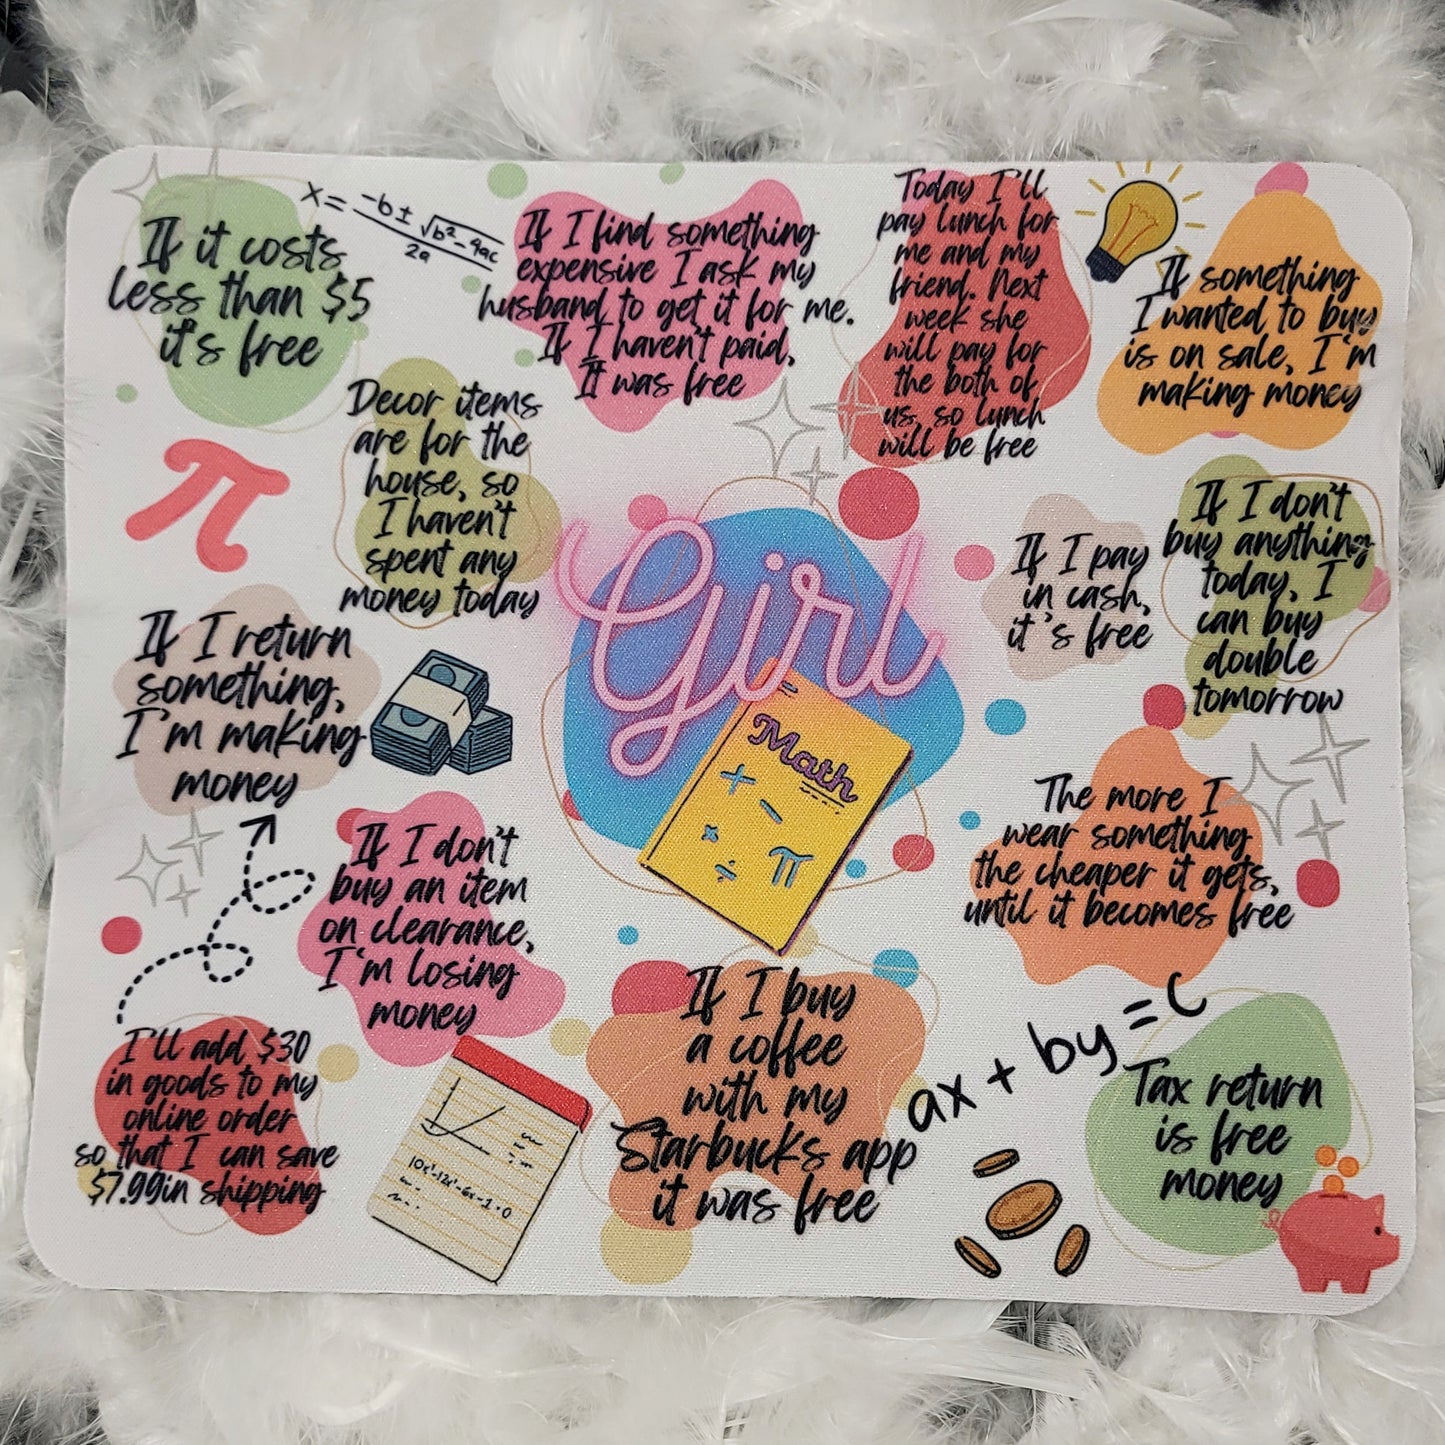 If it costs
less than $5
it's free
x= -b± √b²-4ac
2a
If I find something
expensive I ask my
husband to get it for me.
If I haven't paid,
It was free
Today I'll
pay lunch for
me and my
friend. Next
week she
will pay for
the both of
us, so lunch
will be free
If something
I wanted to buy
is on sale, I'm
making money
Decor items
are for the
house, so
I haven't
spent any
money today
π
Girl
Math
+ -
× ÷ π
If I pay
in cash,
it's free
If I don't
buy anything
today, I
can buy
double
tomorrow
If I return
something,
I'm making
money
If I don't
buy an item
on clearance,
I'm losing
money
The more I
wear something
the cheaper it gets,
until it becomes free
I'll add $30
in goods to my
online order
so that I can save
$7.99in shipping
If I buy
a coffee
with my
Starbucks app
it was free
ax + by = C
Tax return
is free
money